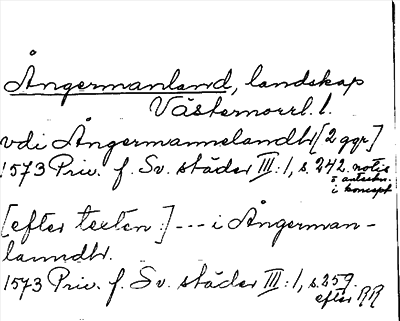 Ångermanland, landskap
Västernorrl. l.
vdi Ångermannelandtt [2 ggr]
1573 Priv. f. Sv. städer III:1, s. 242. notis
o. anteckn.
i koncept
[efter texten:] --- i Ångerman-
lanndtt.
1573 Priv. f. Sv. städer III:1, s. 259.
efter RR